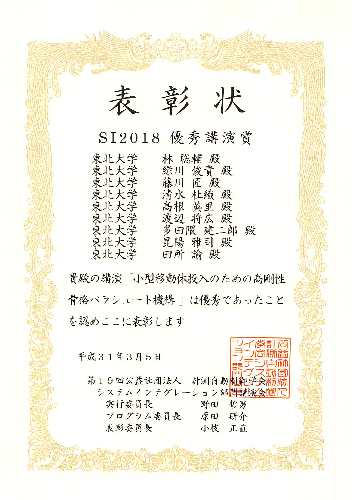 表彰状
SI2018 優秀講演賞
東北大学 林 聡輔 殿
東北大学 緑川 俊貴 殿
東北大学 藤川 匠 殿
東北大学 清水 杜織 殿
東北大学 高根 英里 殿
東北大学 渡辺 将広 殿
東北大学 多田隈 建二郎 殿
東北大学 昆陽 雅司 殿
東北大学 田所 諭 殿
貴殿の講演「小型移動体投入のための高剛性
骨格パラシュート機構」は優秀であったこと
を認めここに表彰します
平成31年3月5日
第19回公益社団法人 計測自動制御学会
システムインテグレーション部門講演会
実行委員長 野田 哲男
プログラム委員長 原田 研介
表彰委員長 小枝 正直